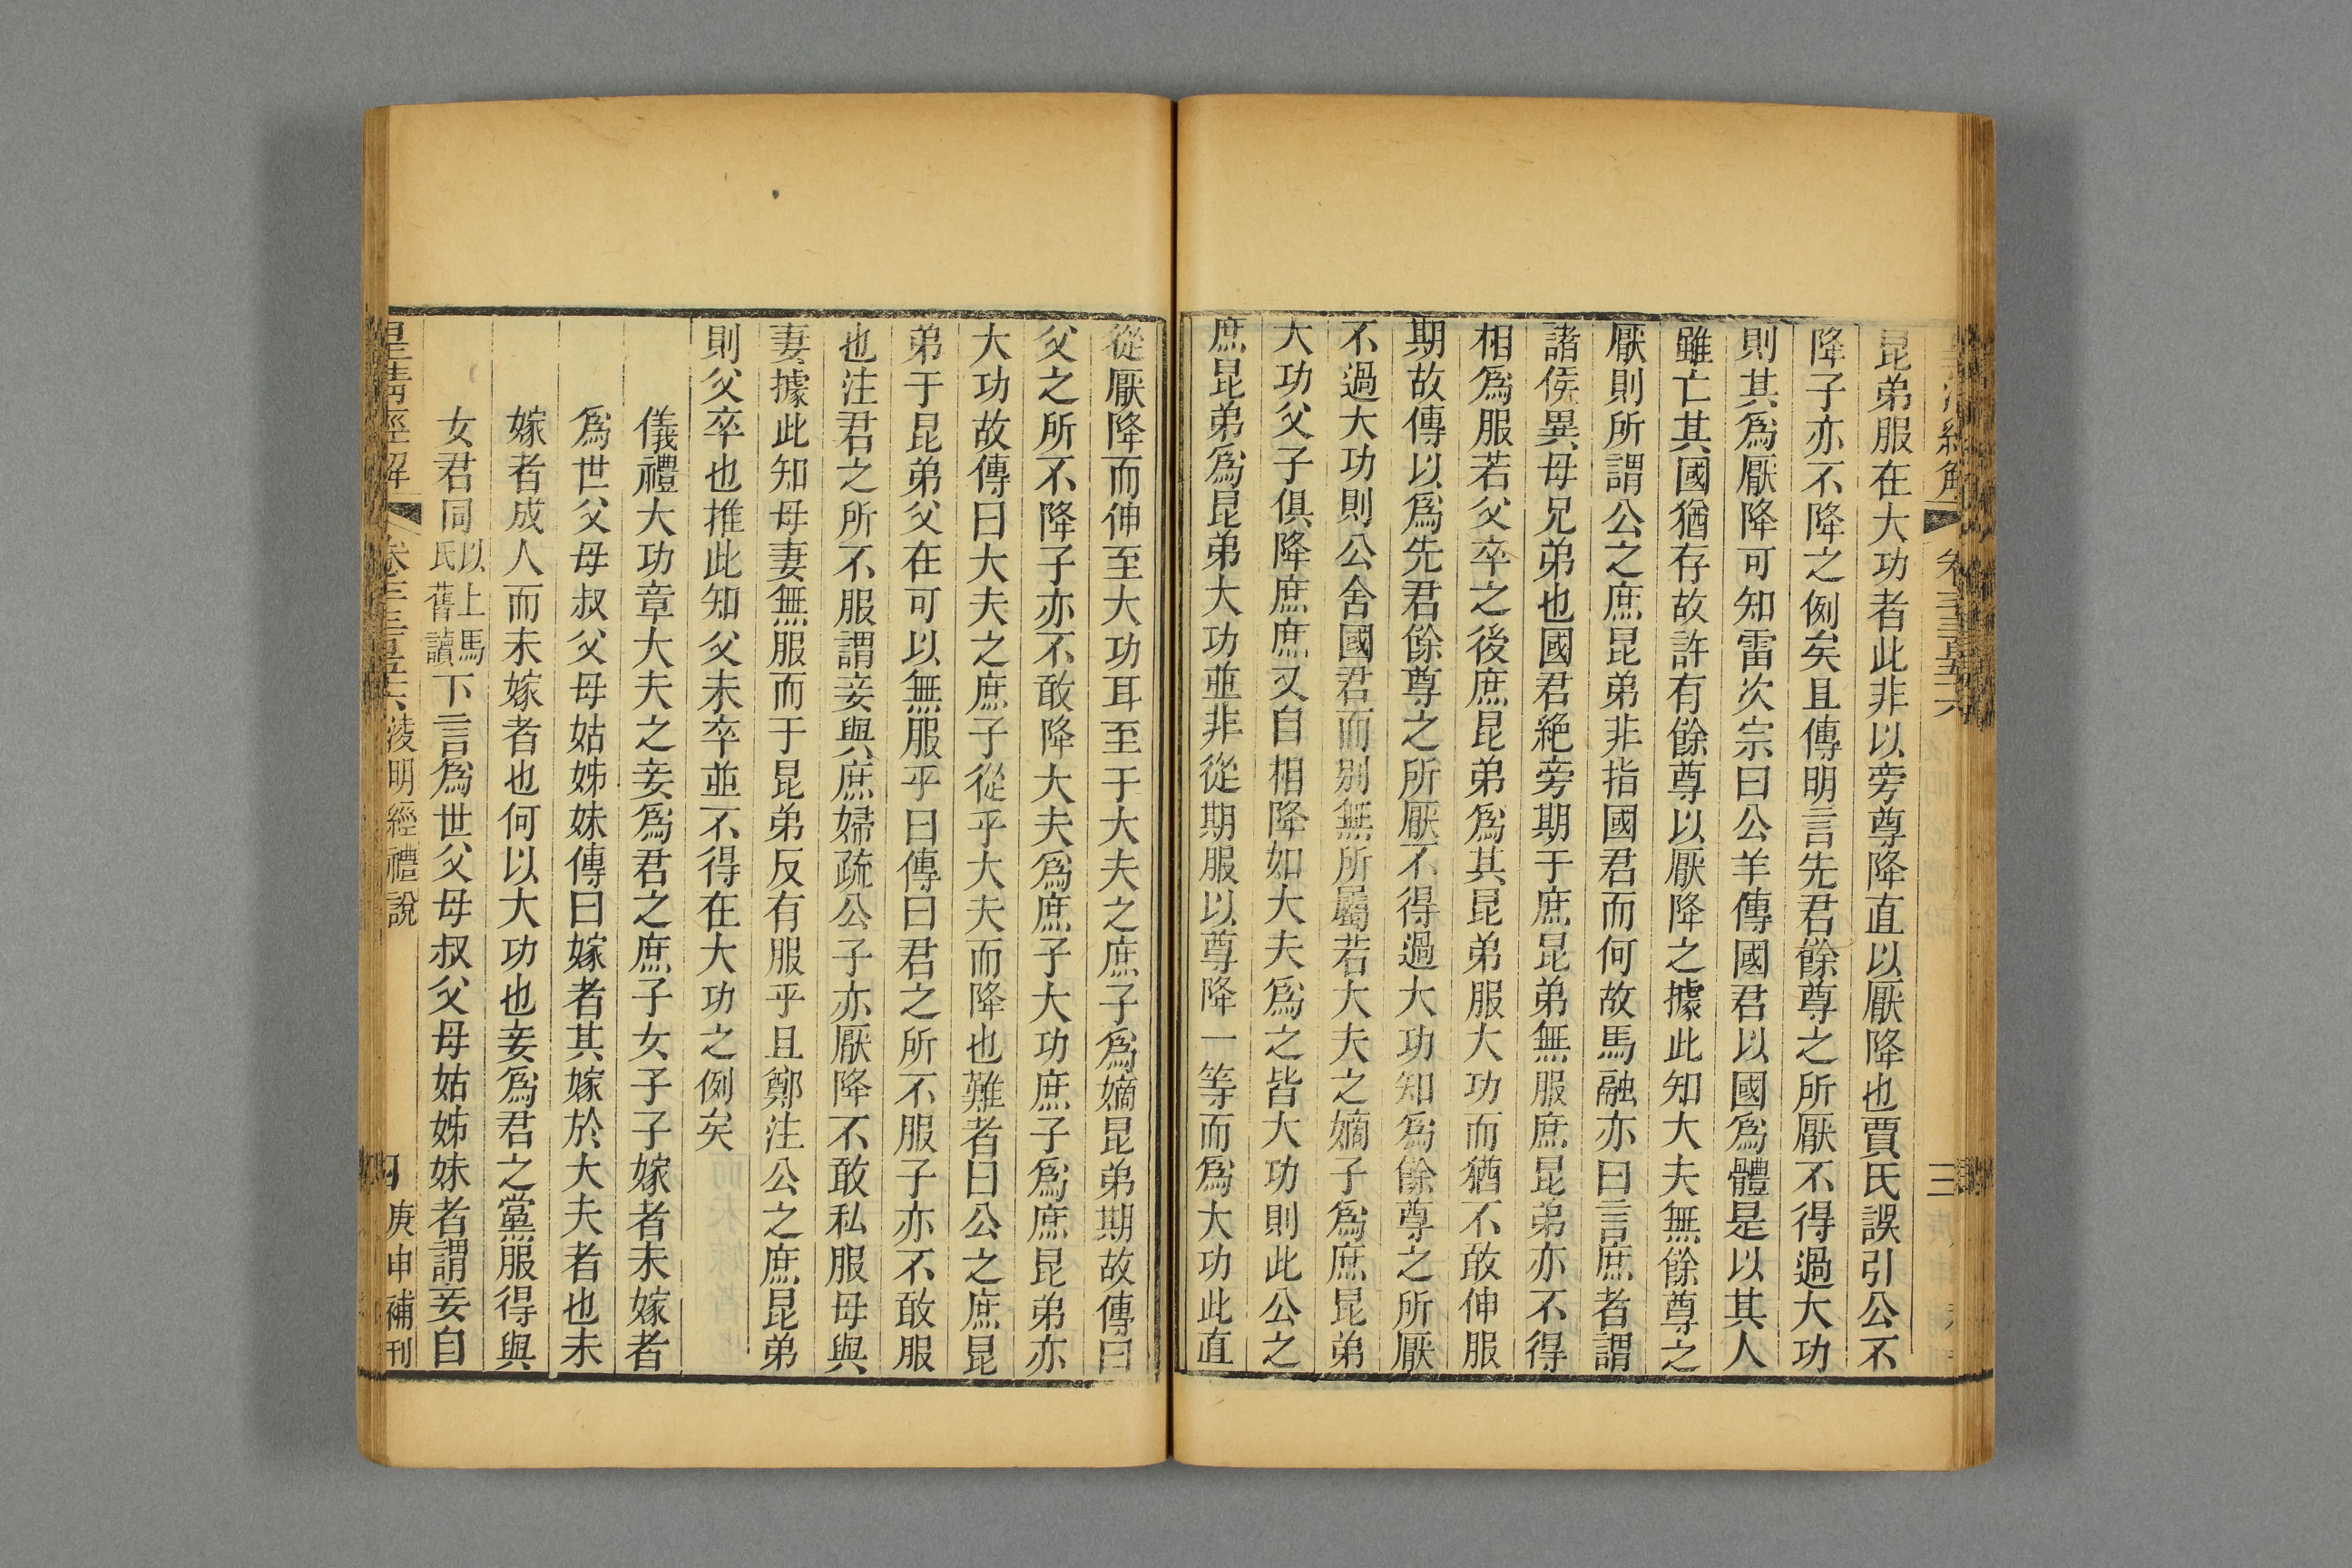 昆弟服在大功者此非以旁尊降直以厭降也賈氏誤引公不
降子亦不降之例矣且傳明言先君餘尊之所厭不得過大功
則其爲厭降可知雷次宗曰公羊傳國君以國爲體是以其人
雖亡其國猶存故許有餘尊以厭降之據此知大夫無餘尊之
厭則所謂公之庶昆弟非指國君而何故馬融亦曰言庶者謂
諸侯異母兄弟也國君絶旁期于庶昆弟無服庶昆弟亦不得
相爲服若父卒之後庶昆弟爲其昆弟服大功而猶不敢伸服
期故傳以爲先君餘尊之所厭不得過大功知爲餘尊之所厭
不過大功則公舍國君而别無所屬若大夫之嫡子爲庶昆弟
大功父子俱降庶庶又自相降如大夫爲之皆大功則此公之
庶昆弟爲昆弟大功並非從期服以尊降一等而爲大功此直
從厭降而伸至大功耳至于大夫之庶子爲嫡昆弟期故傳曰
父之所不降子亦不敢降大夫爲庶子大功庶子爲庶昆弟亦
大功故傳曰大夫之庶子從乎大夫而降也難者曰公之庶昆
弟于昆弟父在可以無服乎曰傳曰君之所不服子亦不敢服
也注君之所不服謂妾與庶婦疏公子亦厭降不敢私服母與
妻據此知母妻無服而于昆弟反有服乎且鄭注公之庶昆弟
則父卒也推此知父未卒並不得在大功之例矣
儀禮大功章大夫之妾爲君之庶子女子子嫁者未嫁者
爲世父母叔父母姑姊妹傳曰嫁者其嫁於大夫者也未
嫁者成人而未嫁者也何以大功也妾爲君之黨服得與
女君同以上馬氏舊讀下言爲世父母叔父母姑姊妹者謂妾自
皇清經解 卷千三百五十六 淩明經禮說 四 庚申補刊